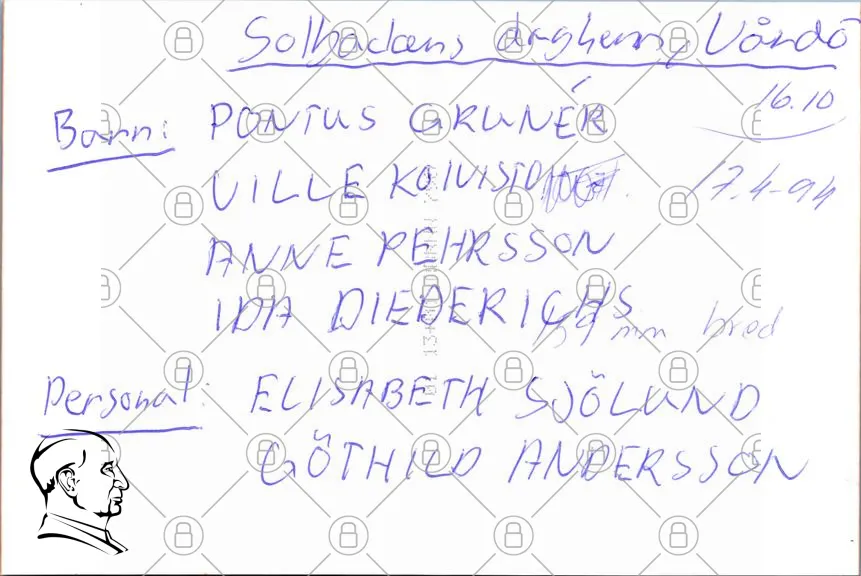 Solbackens daghem, Vårdö
16.10
Barn: PONTUS GRUNÉR
VILLE KOIVISTO
17.4-94
ANNE PEHRSSON
IDA DIEDERICHS
159 mm bred
Personal: ELISABETH SJÖLUND
GÖTHILD ANDERSSON